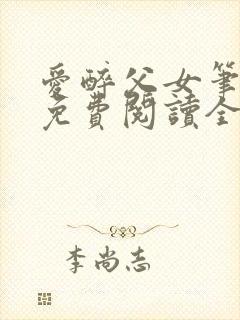 愛醉父女筆
免費閱讀全
李尚志